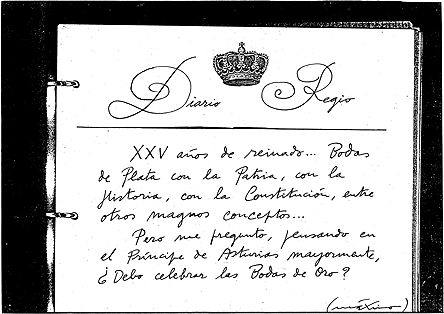 Diario Regio
XXV años de reinado... Bodas
de Plata con la Patria, con la
Historia, con la Constitución, entre
otros magnos conceptos...
Pero me pregunto, pensando en
el Príncipe de Asturias mayormente,
¿Debo celebrar las Bodas de Oro?
(máximo)